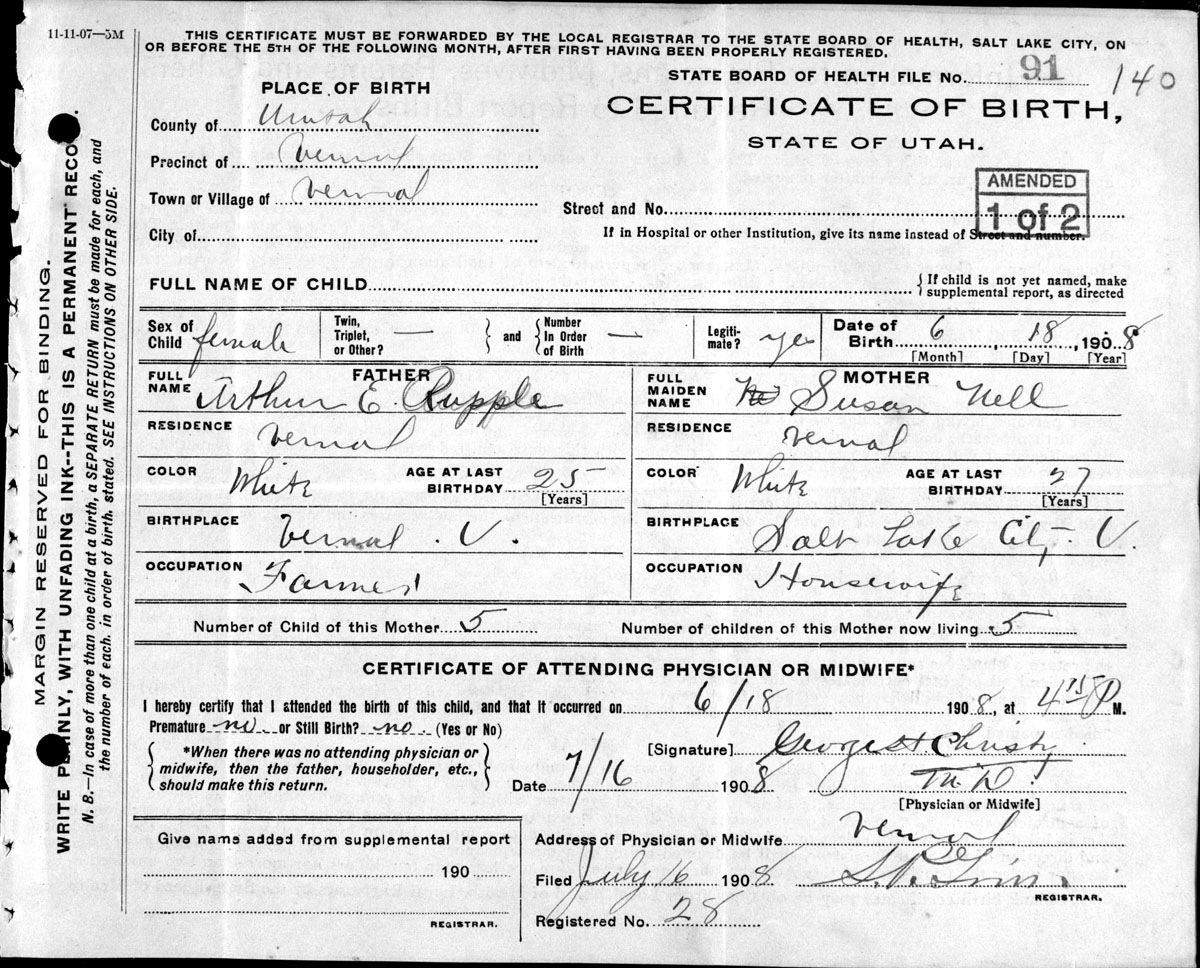 11-11-07—5M
THIS CERTIFICATE MUST BE FORWARDED BY THE LOCAL REGISTRAR TO THE STATE BOARD OF HEALTH, SALT LAKE CITY, ON
OR BEFORE THE 5TH OF THE FOLLOWING MONTH, AFTER FIRST HAVING BEEN PROPERLY REGISTERED.
STATE BOARD OF HEALTH FILE No. 91 140
PLACE OF BIRTH
CERTIFICATE OF BIRTH,
STATE OF UTAH.
County of Uintah
Precinct of Vernal
Town or Village of Vernal
City of
AMENDED
1 of 2
Street and No.
If in Hospital or other Institution, give its name instead of Street and number.
FULL NAME OF CHILD
If child is not yet named, make
supplemental report, as directed
Sex of Child female Twin, Triplet, or Other? — and Number In Order of Birth — Legiti- mate? yes Date of Birth 6, 18, 1908
[Month] [Day] [Year]
FATHER
FULL NAME Arthur E Rupple
RESIDENCE Vernal
COLOR White AGE AT LAST BIRTHDAY 25
[Years]
BIRTHPLACE Vernal . U.
OCCUPATION Farmer
MOTHER
FULL MAIDEN NAME Susan Nell
RESIDENCE Vernal
COLOR White AGE AT LAST BIRTHDAY 27
[Years]
BIRTHPLACE Salt Lake City. U.
OCCUPATION Housewife
Number of Child of this Mother 5 Number of children of this Mother now living 5
CERTIFICATE OF ATTENDING PHYSICIAN OR MIDWIFE*
I hereby certify that I attended the birth of this child, and that it occurred on 6/18 1908, at 4 15 P M.
Premature no or Still Birth? no (Yes or No)
*When there was no attending physician or
midwife, then the father, householder, etc.,
should make this return.
[Signature] George H Christy
Date 7/16 1908 M.D.
[Physician or Midwife]
Give name added from supplemental report
190
REGISTRAR.
Address of Physician or Midwife Vernal
Filed July 6 1908
REGISTRAR.
Registered No. 28
MARGIN RESERVED FOR BINDING.
WRITE PLAINLY, WITH UNFADING INK--THIS IS A PERMANENT RECORD.
N. B.—In case of more than one child at a birth, a SEPARATE RETURN must be made for each, and
the number of each, in order of birth, stated. SEE INSTRUCTIONS ON OTHER SIDE.